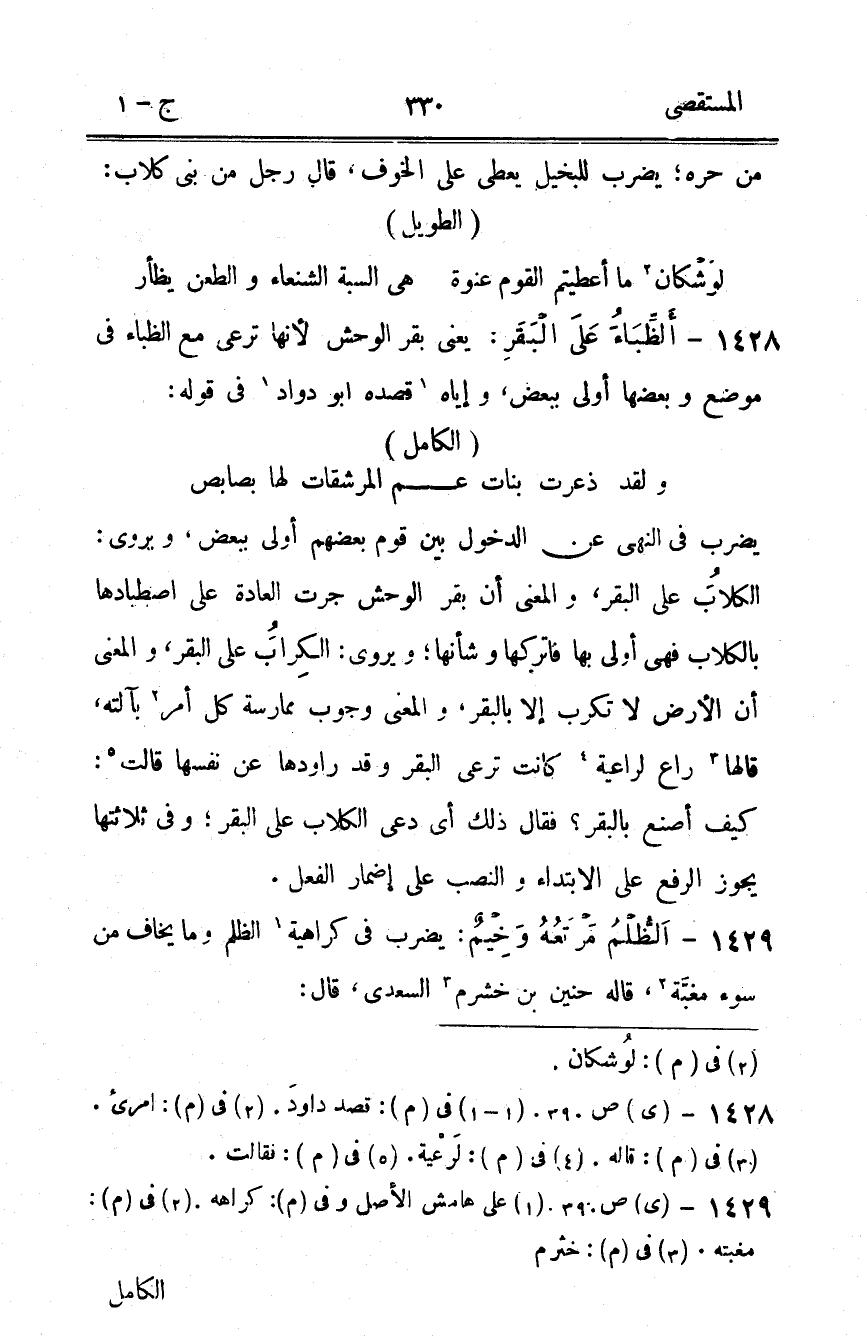 المستقصى ٣٣٠ ج - ١
من حره؛ يضرب للبخيل يعطى على الخوف، قال رجل من بنى كلاب:
( الطويل )
لَوَشْكان٢ ما أعطيتم القوم عنوة هى السبة الشنعاء و الطعن يظأر
١٤٢٨ - أَلظِّبَاءَُ عَلَى الْبَقَرِ: يعنى بقر الوحش لأنها ترعى مع الظباء فى
موضع و بعضها أولى ببعض، و إياه ١قصده ابو دواد١ فى قوله:
( الكامل )
و لقد ذعرت بنات عـــم المرشقات لها بصابص
يضرب فى النهى عن الدخول بين قوم بعضهم أولى ببعض، و يروى:
الكلابَُ على البقر، و المعنى أن بقر الوحش جرت العادة على اصطيادها
بالكلاب فهى أولى بها فاتركها و شأنها؛ و يروى: الكِرابَُ على البقر، و المعنى
أن الأرض لا تكرب إلا بالبقر، و المعنى وجوب ممارسة كل أمر٢ بآلته،
قالها٣ راع لراعية٤ كانت ترعى البقر و قد راودها عن نفسها قالت٥:
كيف أصنع بالبقر؟ فقال ذلك أى دعى الكلاب على البقر؛ و فى ثلاثتها
يجوز الرفع على الابتداء و النصب على إضمار الفعل.
١٤٢٩ - اَلظُّلْمُ مَرْتَعُهُ وَخِيْمٌ: يضرب فى كراهية١ الظلم و ما يخاف من
سوء مغبَّة٢، قاله حنين بن خشرم٣ السعدى، قال:
(٢) فى ( م ): لوُشكان.
١٤٢٨ - (ى) ص ٣٩٠. (١-١) فى ( م ): قصد داودَ. (٢) فى (م): امرئ.
(٣) فى ( م ): قاله. (٤) فى ( م ): لَرْعية. (٥) فى ( م ): نقالت.
١٤٢٩ - (ى) ص ٣٩٠. (١) على هامش الأصل و فى (م): كراهه. (٢) فى (م):
مغبته. (٣) فى (م): خثرم
الكامل